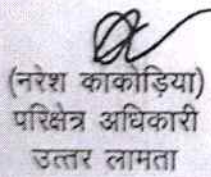 (नरेश काकोड़िया)
परिक्षेत्र अधिकारी
उत्तर लामता